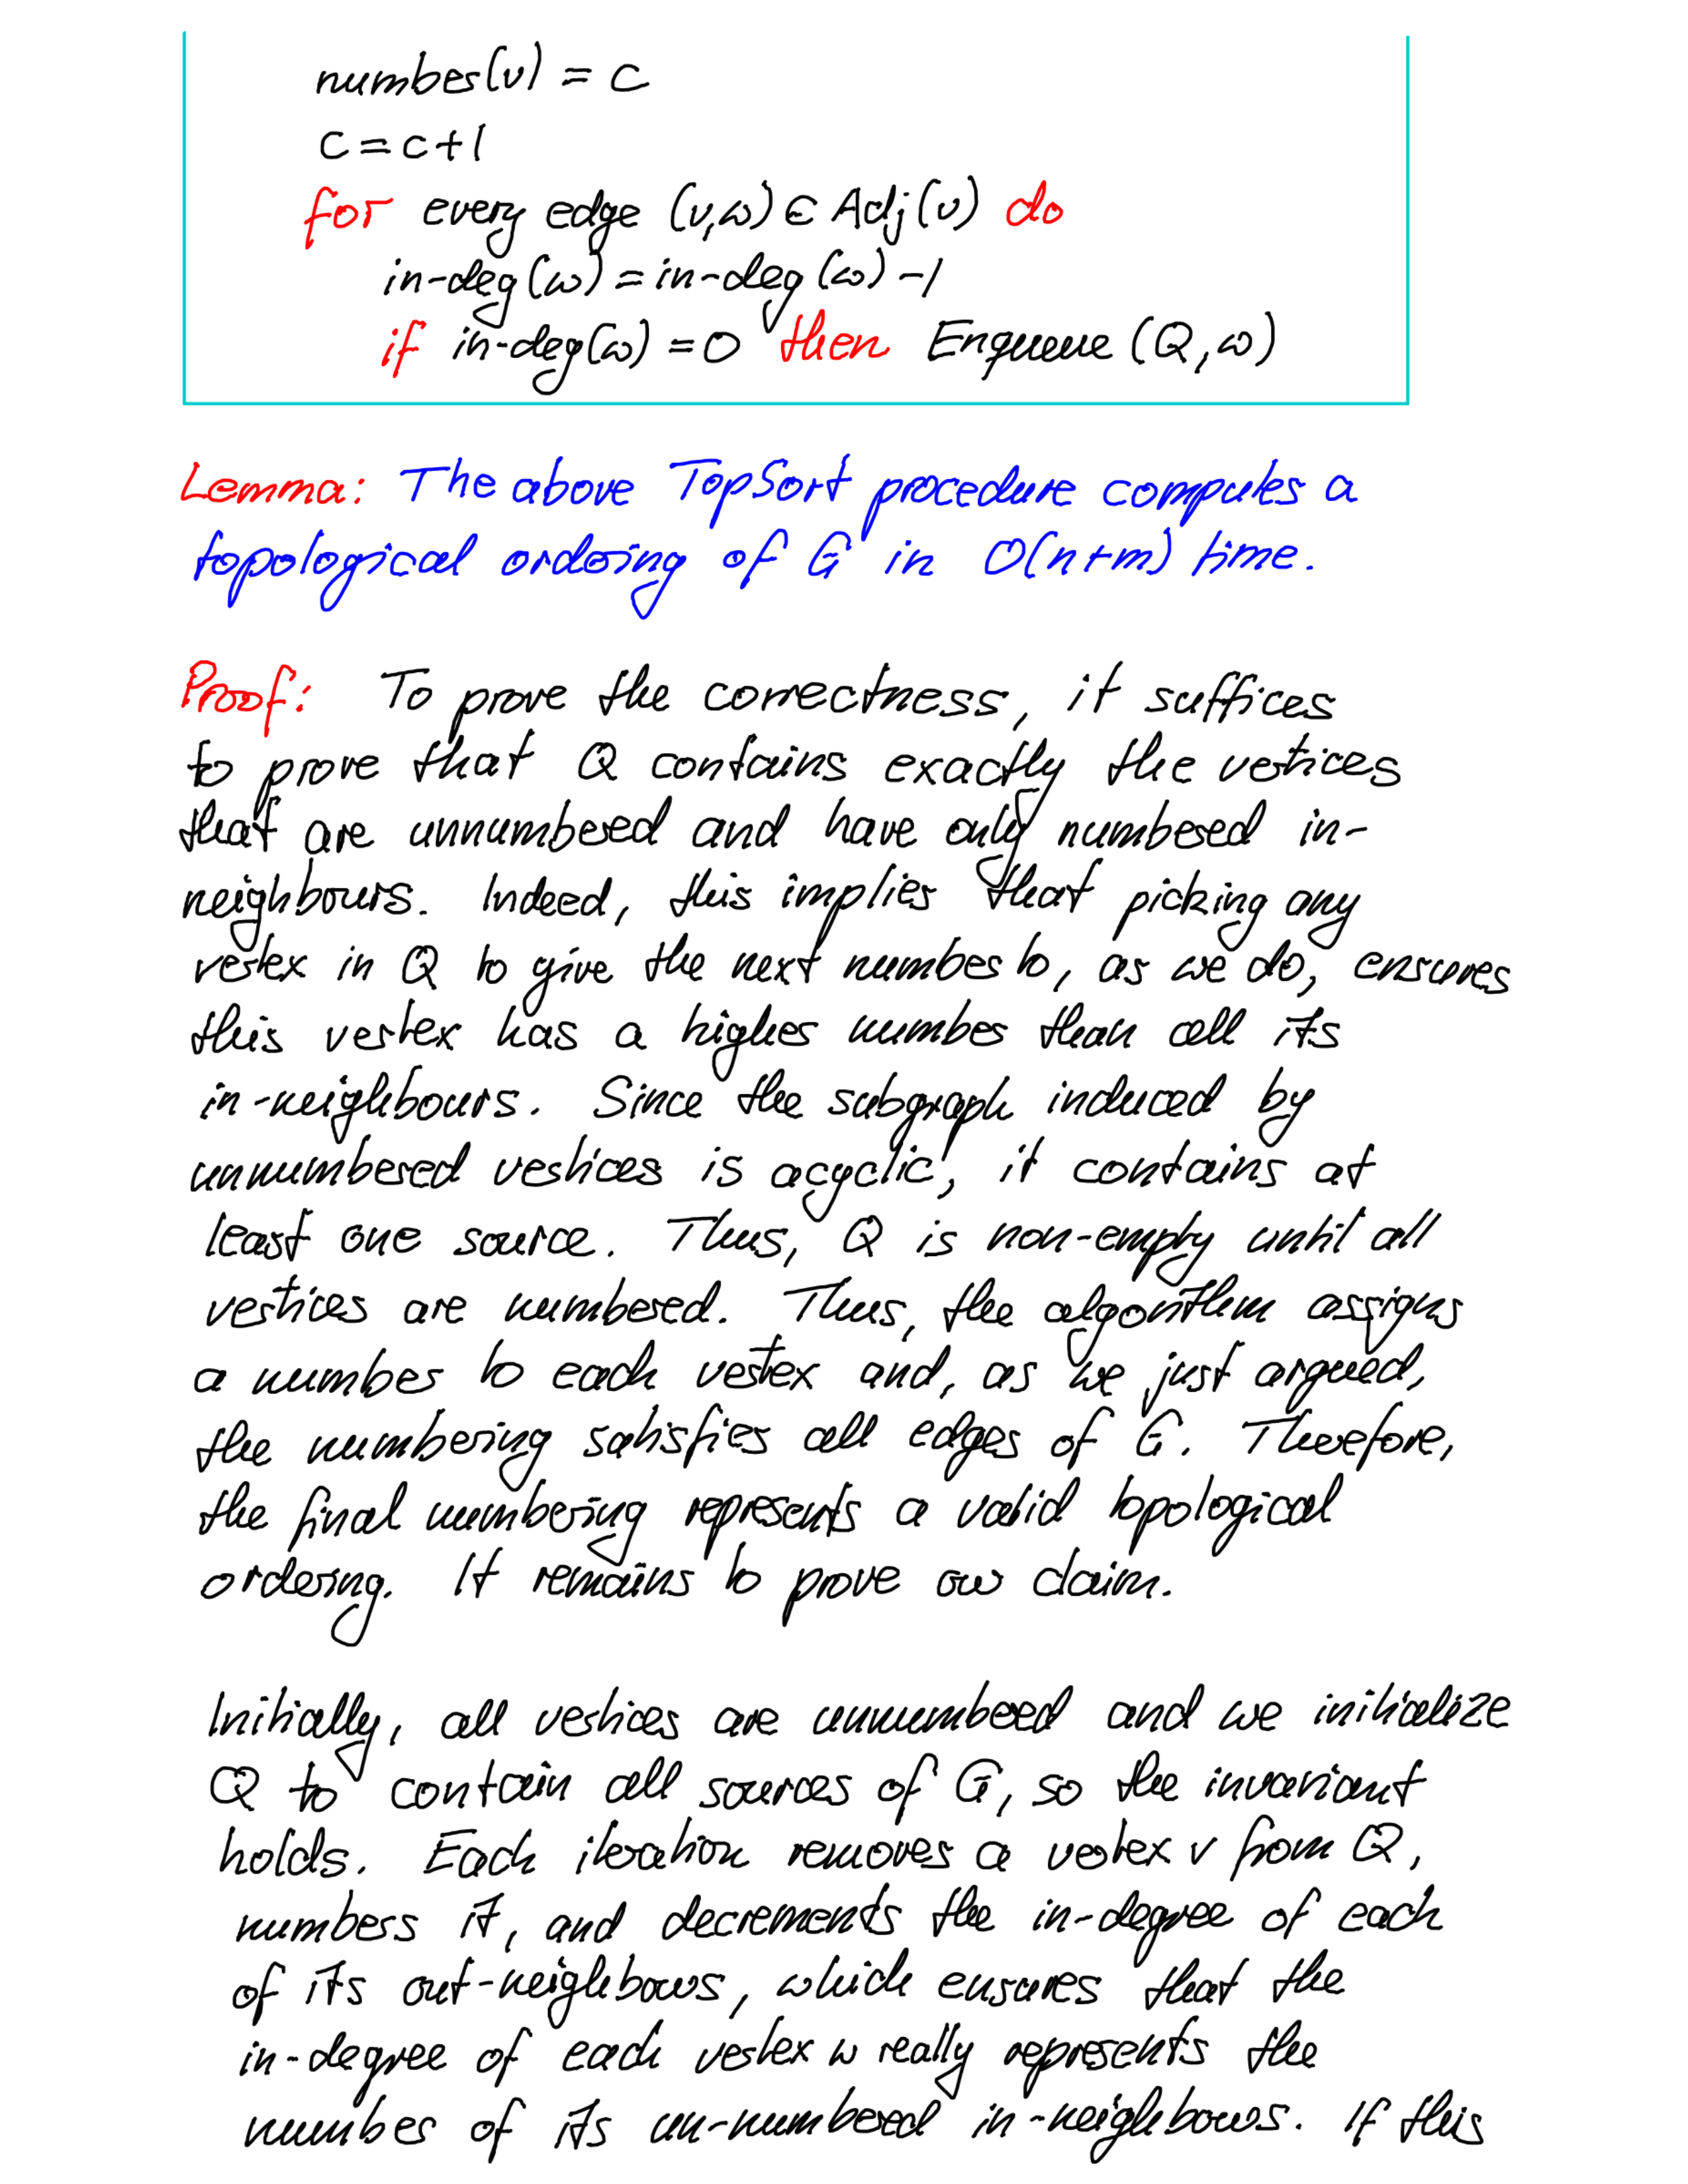 number(v) = c
c = c+1
for every edge (v,w) ∈ Adj(v) do
in-deg(w) = in-deg(w) -1
if in-deg(w) = 0 then Enqueue (Q,w)
Lemma: The above TopSort procedure computes a
topological ordering of G in O(n+m) time.
Proof: To prove the correctness, it suffices
to prove that Q contains exactly the vertices
that are unnumbered and have only numbered in-
neighbours. Indeed, this implies that picking any
vertex in Q to give the next number to, as we do, ensures
this vertex has a higher number than all its
in-neighbours. Since the subgraph induced by
unnumbered vertices is acyclic, it contains at
least one source. Thus, Q is non-empty until all
vertices are numbered. Thus, the algorithm assigns
a number to each vertex and, as we just argued,
the numbering satisfies all edges of G. Therefore,
the final numbering represents a valid topological
ordering. It remains to prove our claim.
Initially, all vertices are unnumbered and we initialize
Q to contain all sources of G, so the invariant
holds. Each iteration removes a vertex v from Q,
numbers it, and decrements the in-degree of each
of its out-neighbours, which ensures that the
in-degree of each vertex w really represents the
number of its un-numbered in-neighbours. If this